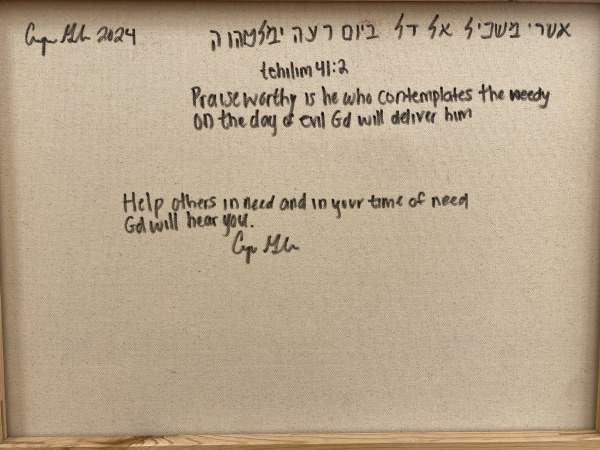 2024
אשרי משכיל אל דל ביום רעה ימלטהו ה
tehilim 41:2
Praiseworthy is he who contemplates the needy
on the day of evil Gd will deliver him
Help others in need and in your time of need
Gd will hear you.